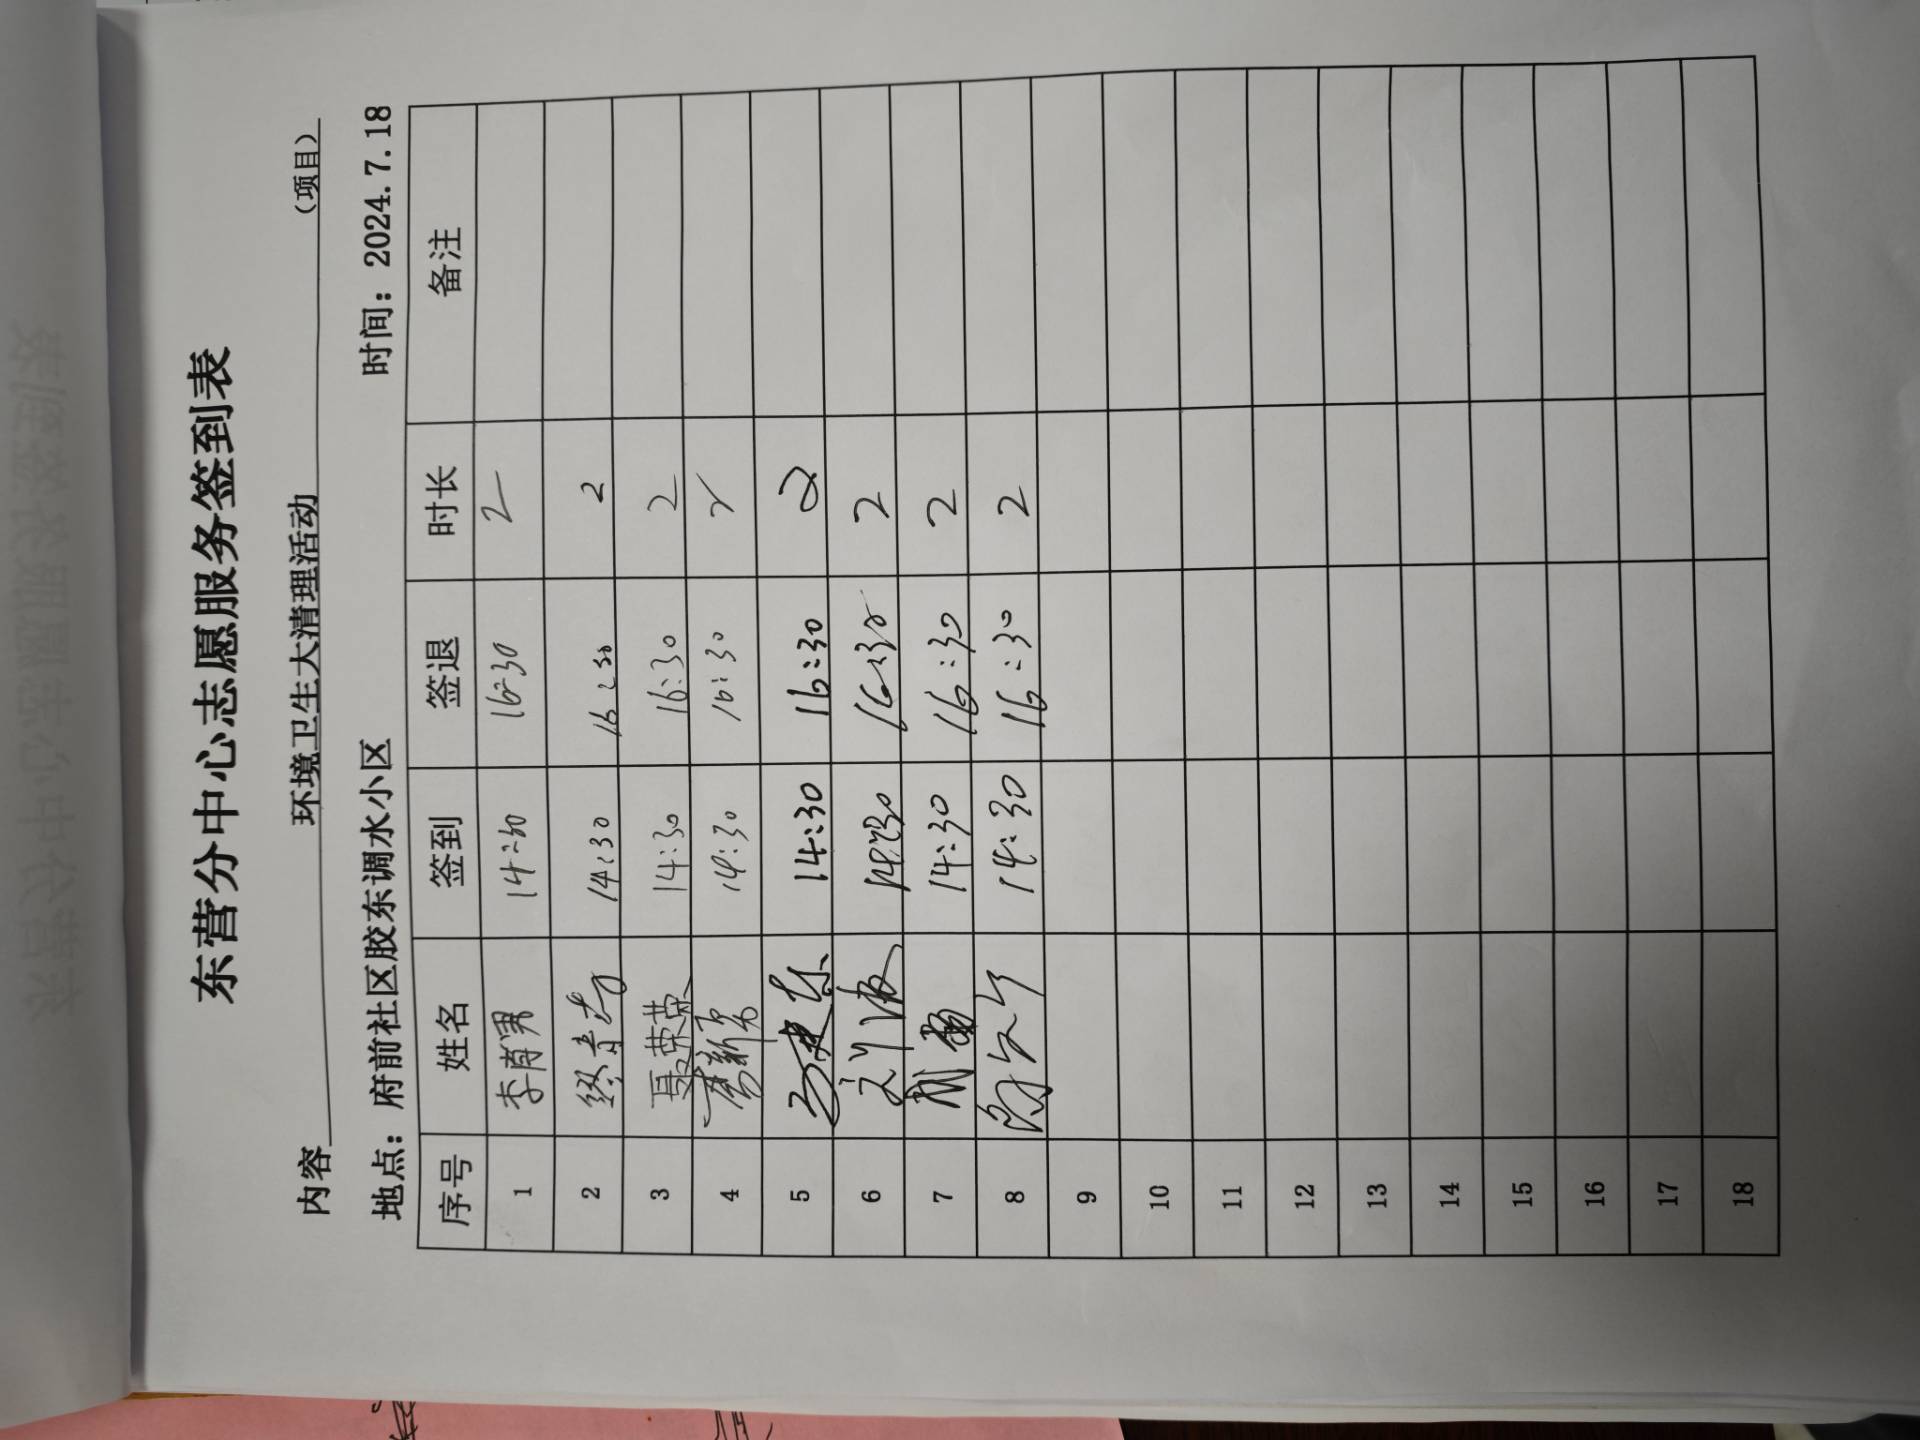 东营分中心志愿服务签到表
内容 环境卫生大清理活动 (项目)
地点：府前社区胶东调水小区 时间：2024.7.18
序号 姓名 签到 签退 时长 备注
1 14:30 16:30 2
2 14:30 16:30 2
3 聂荣荣 14:30 16:30 2
4 14:30 16:30 2
5 14:30 16:30 2
6 14:30 16:30 2
7 14:30 16:30 2
8 14:30 16:30 2
9
10
11
12
13
14
15
16
17
18